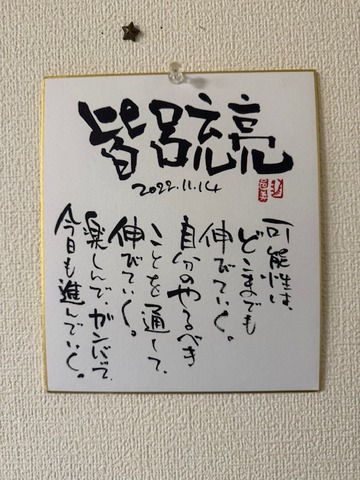 皆呂充亮
2022.11.14
可能性は、
どこまでも
伸びていく。
自分のやるべき
ことを通して、
伸びていく。
楽しんで、ガンバッて、
今日も進んでいく。